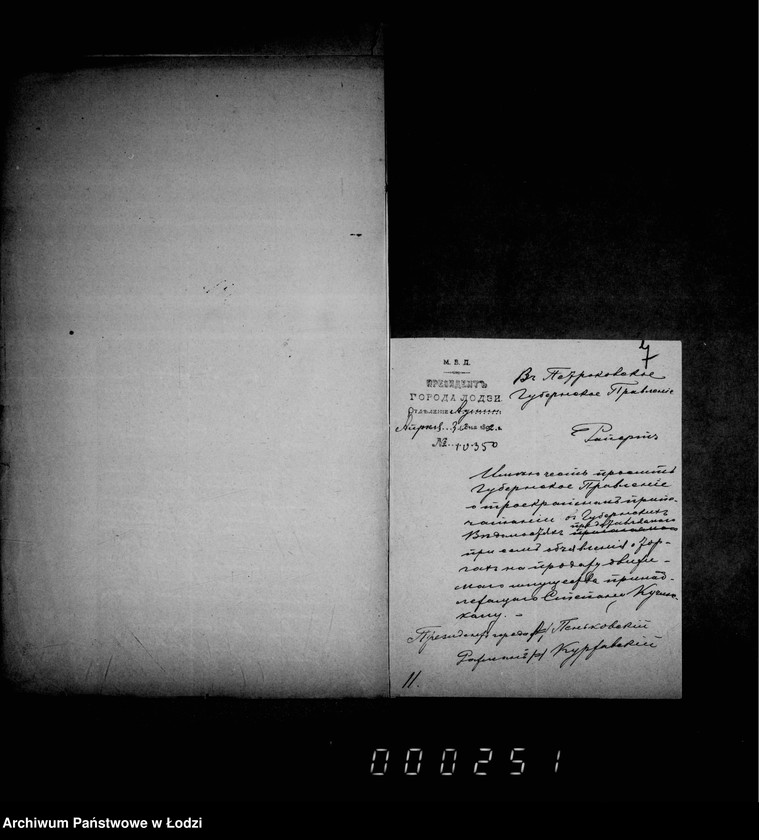 4
М. В. Д.
ПРЕЗИДЕНТЪ
ГОРОДА ЛОДЗИ.
Отдѣленіе
Апрѣля 3 дня 1892 г.
№ 10350
Въ Петроковское
Губернское Правленіе
Рапортъ
Имѣю честь просить
Губернское Правленіе
о троекратномъ припе-
чатаніи въ Губернскихъ
Вѣдомостяхъ
при семъ объявленія о тор-
гахъ на продажу движи-
маго имущества принад-
лежащаго
Президентъ города Пеньковскій
11.
000251
Archiwum Państwowe w Łodzi